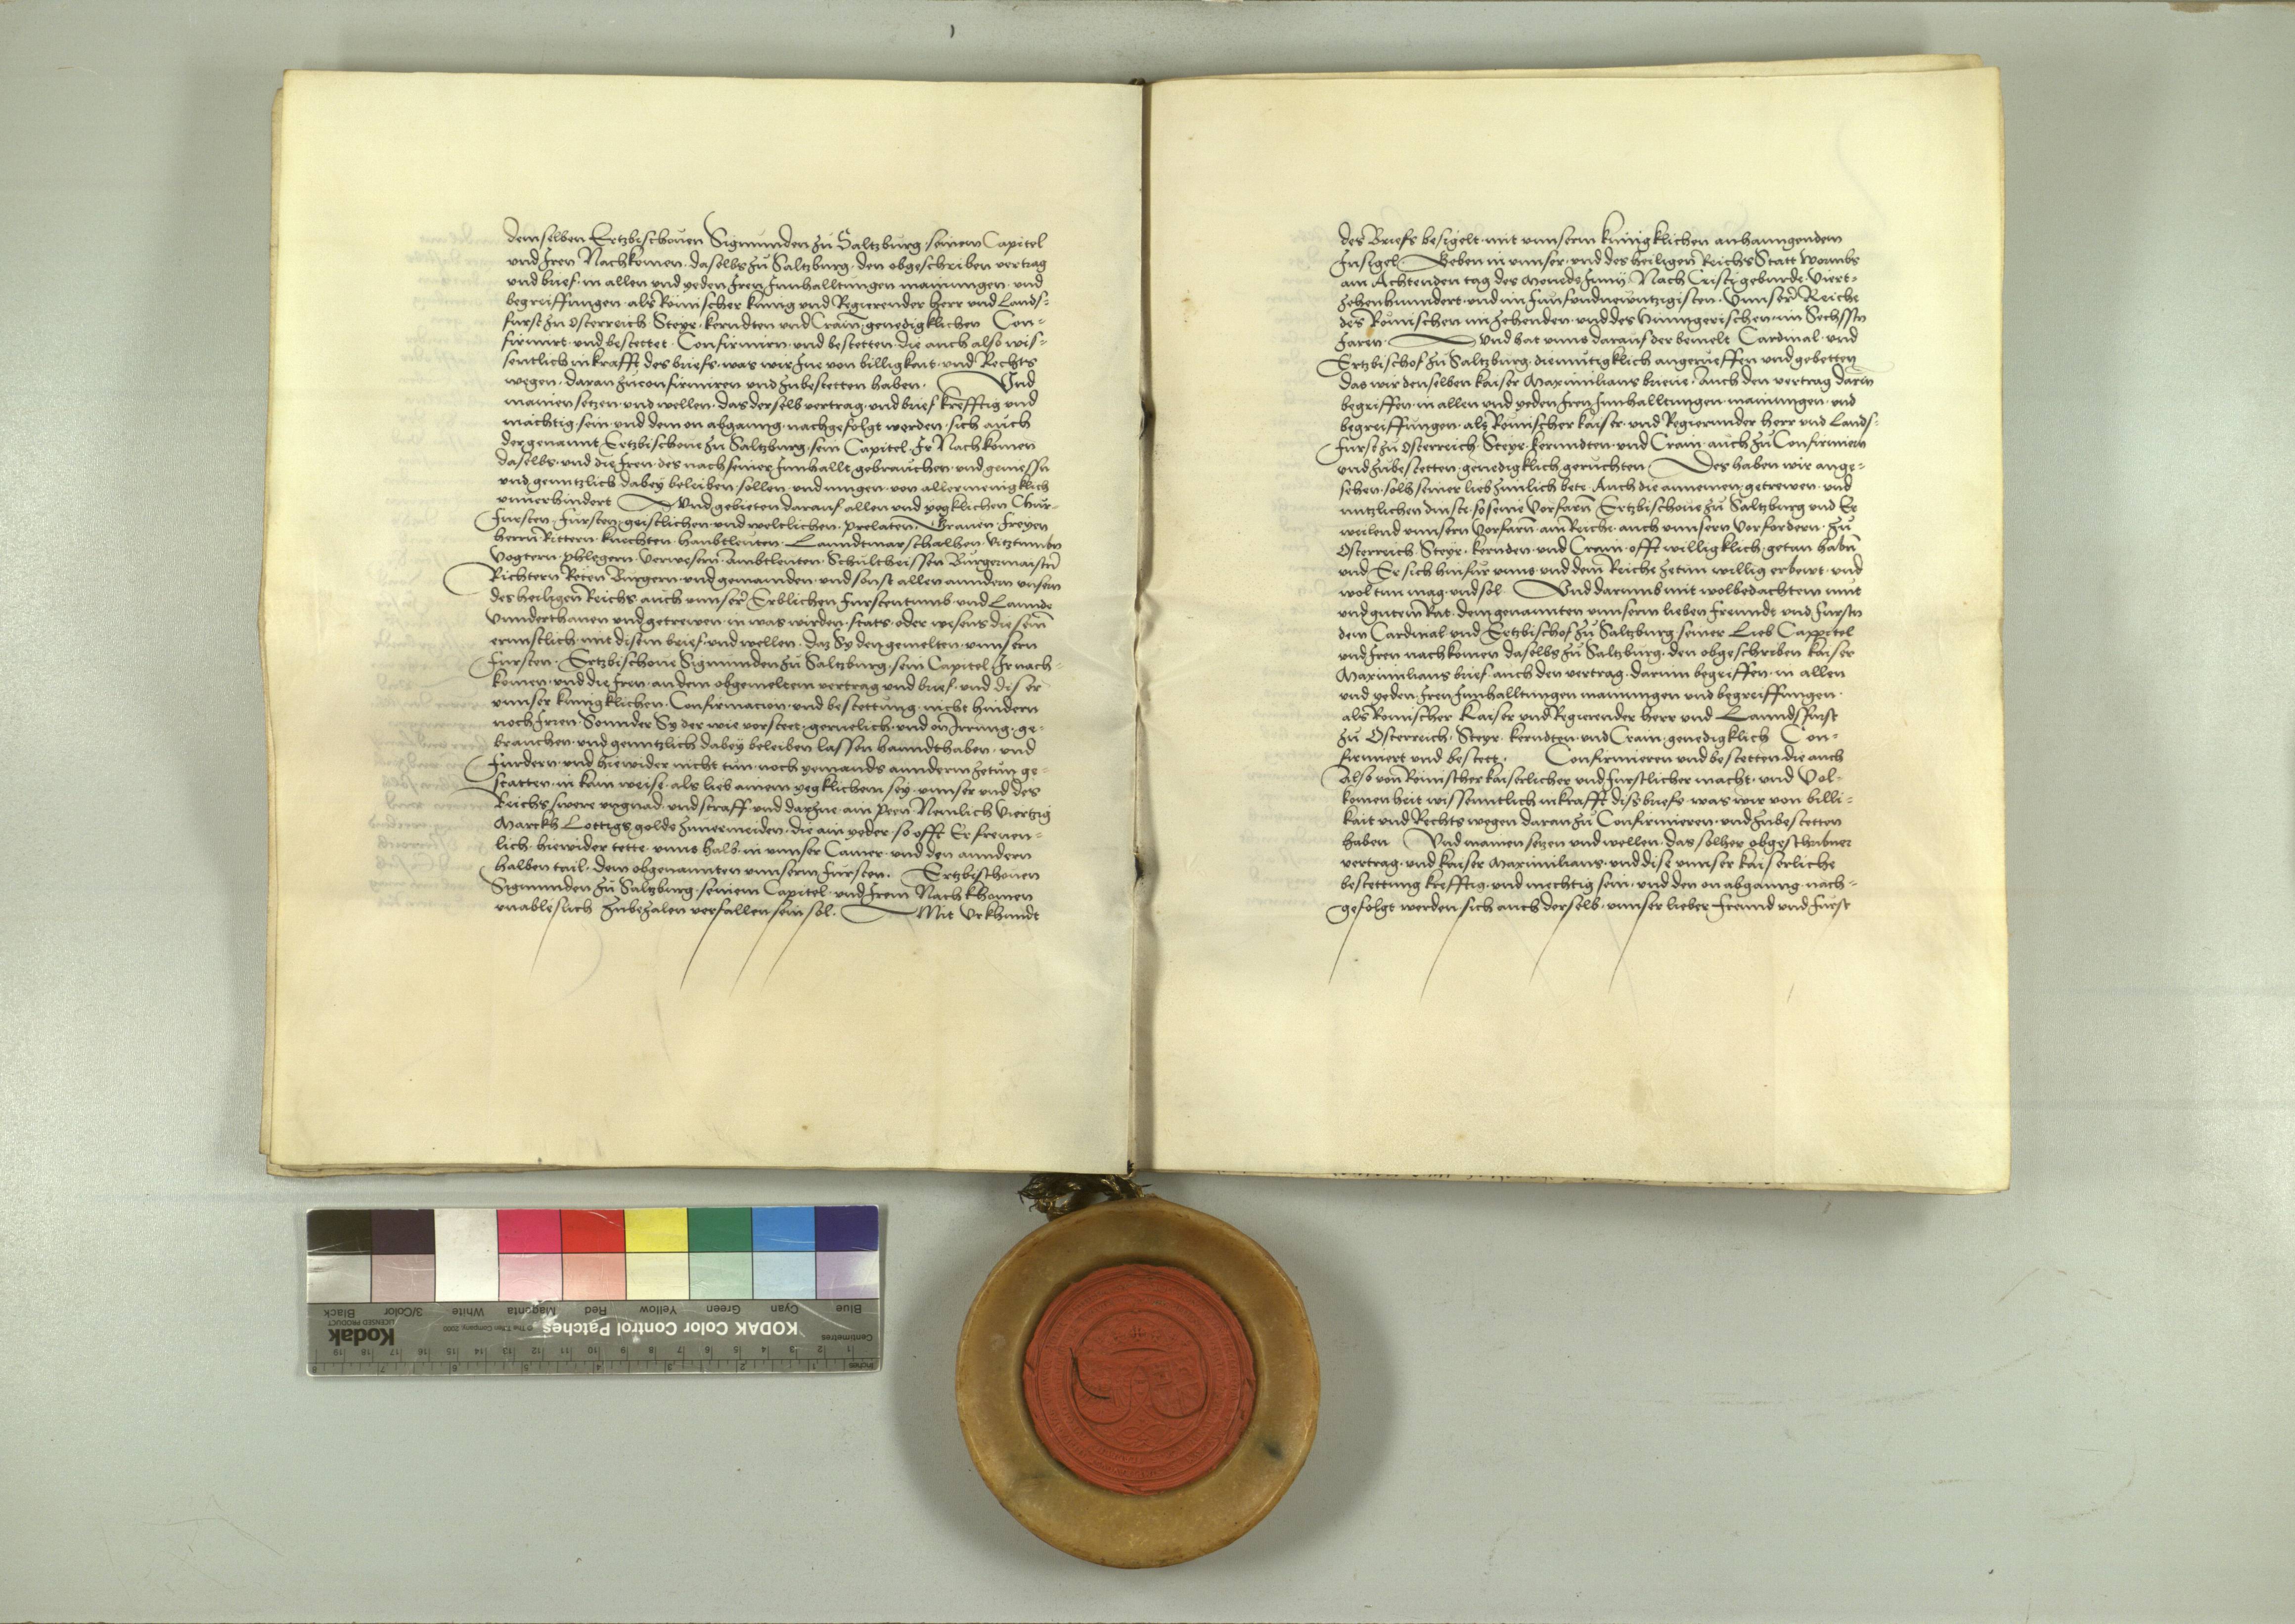 demselben Ertzbischouen Sigmunden zu Saltzburg. seinem Capitel
vnd Iren Nachkomen. daselbs zu Saltzburg. den obgeschriben vertrag
vnd brief. in allen vnd yeden Iren Innhalltungen mainungen. vnd
begreiffungen. als Römischer kunig vnd Regierender Herr vnd Lands-
furst zu Osterreich Steyr. kerndten vnd Crain. genedigklichen Con-
firmirt. vnd bestettet. Confirmirn. vnd bestetten. die auch also wis-
sentlich in krafft des briefs. was wir Ine von billigkait. vnd Rechts
wegen. daran zu confirmiren vnd zubestetten haben. Vnd
mainen setzen. vnd wellen. das derselb vertrag. vnd brief krefftig vnd
mächtig. sein. vnd dem on abganng. nachgefolgt werden. sich auch
der genannt. Ertzbischoue zu Saltzburg. sein Capitel. Ir Nachkomen
daselbs. vnd die Iren. des nach seiner Innhallt. gebrauchen. vnd geniessn
vnd genntzlich dabey beleiben. sollen. vnd mugen. von allermenigklich
vnuerhindert Vnd gebieten darauf allen vnd yegklichen Chur-
fursten. fursten. geistlichen. vnd weltlichen. prelaten. Grauen. freyen
herrn. Rittern. knechten. haubtleuten. Lanndtmarschalhen. Vitztumbn
Vogtern. phlegern. verwesern. ambtleuten. Schultheissen Burgermaistrn
Richtern Reten Burgern. vnd gemainden. vnd sonst allen anndern vnsern
des heiligen Reichs auch vnnser Erblichen furstentumb. vnd Lannde
Vnnderthanen vnd getrewen. in was wirden. stats. oder wesens die sein
ernnstlich. mit disem brief. vnd wellen. daz Sy den gemelten. vnnsern
fursten. Ertzbischoue Sigmunden zu Saltzburg. sein Capitel. Ir nach-
komen. vnd die Iren. an dem obgemeltem vertrag vnd brief. vnd diser
vnnser kunigklichen. Confirmacion. vnd bestettung. nicht hindern
noch Irren. Sonnder Sy der wie vorsteet. geruelich. vnd on Irrung. ge-
brauchen. vnd genntzlich dabey beleiben lassen hanndthaben. vnd
furdern. vnd hiewider nicht tun. noch yemands anndern zetun ge-
statten. in kain weise. als lieb ainem yegklichem sey. vnnser vnd des
Reichs swere vngnad. vnd straff. vnd darzue. ain peen Nemlich Viertzig
Marckh Lottigs golds zuuermeiden. die ain yeder. so offt Er freuen-
lich. hiewider tette. vnns halb. in vnnser Camer. vnd den anndern
halben tail. dem obgenannten vnnserm fursten. Ertzbischouen
Sigmunden zu Saltzburg. seinem Capitel. vnd Iren Nachkhomen
vnableslich zubezalen verfallen sein sol. Mit Vrkhundt
des Briefs besigelt. mit vnnserm kunigklichen anhanngendem
Insigel. Geben in vnnser. vnd des heiligen Reichs Statt Wormbs
am Achtenden tag des Moneds Junij Nach Cristi geburde Viert-
zehenhunndert. vnd im funfundnewntzigisten. Vnnser Reiche
des Römischen im zehenden. vnd des Hunngerischen. im Sechsstn
Jaren. Vnd hat vnns darauf der bemelt Cardinal. vnd
Ertzbischof zu Saltzburg. diemutigklich angerueffen vnd gebetten
das wir denselben kaiser Maximilians brieue. Auch den vertrag darin
begriffen. in allen vnd yeden Iren Innhalltungen. mainungen. vnd
begreiffungen. als Römischer kaiser. vnd Regierunder herr vnd Lands-
furst zu Osterreich. Steyr. kernndten. vnd Crain. auch zu Confirmiern
vnd zubestetten. genedigklich geruchten Des haben wir ange-
sehen. solh seiner lieb zimlich bete. Auch die annemen. getrewen. vnd
nutzlichen dinst. so seine Vorfarn Ertzbischoue zu Saltzburg vnd Er
weilend vnnsern Vorfarn. am Reiche. auch vnnsern Vorfordern. zu
Osterreich. Steyr. kernden. vnd Crain. offt williglich. getan habn
vnd. Er sich hinfur vnns. vnd dem Reiche zetun willig erbewt. vnd
wol tun mag. vnd sol Vnd darumb mit wolbedachtem mut
vnd gutem Rat. dem genannten vnnserm lieben freundt vnd fursten
dem Cardinal vnd Ertzbischof zu Saltzburg seiner Lieb Cappitel
vnd Iren nachkomen daselbs zu Saltzburg. den obgeschriben kaiser
Maximilians brief. auch den vertrag. darinn begriffen. in allen
vnd yeden. Iren Innhalltungen mainungen vnd begreiffungen.
als Romischer Kaiser vnd Regierender herr vnd Lanndsfurst
zu Osterreich. Steyr. kerndten. vnd Crain. genedigklich Con-
firmiert vnd bestett. Confirmieren vnd bestetten die auch
Also von Römischer kaiserlicher vnd furstlicher macht. vnd Vol-
komenheit wissenntlich in krafft diss briefs. was wir von billi-
kait vnd Rechts wegen daran zu Confirmieren. vnd zubestetten
haben Vnd mainen setzen vnd wellen. das solher obgeschribner
vertrag. vnd kaiser Maximilians. vnd dise vnnser kaiserliche
bestettung krefftig. vnd mechtig sein. vnd den on abganng. nach-
gefolgt werden. sich auch derselb. vnnser lieber freund vnd furst
KODAK Color Control Patches
Kodak
LICENSED PRODUCT
© The Tiffen Company, 2000
Centimetres
Inches
Blue Cyan Green Yellow Red Magenta White 3/Color Black
1 2 3 4 5 6 7 8 9 10 11 12 13 14 15 16 17 18 19